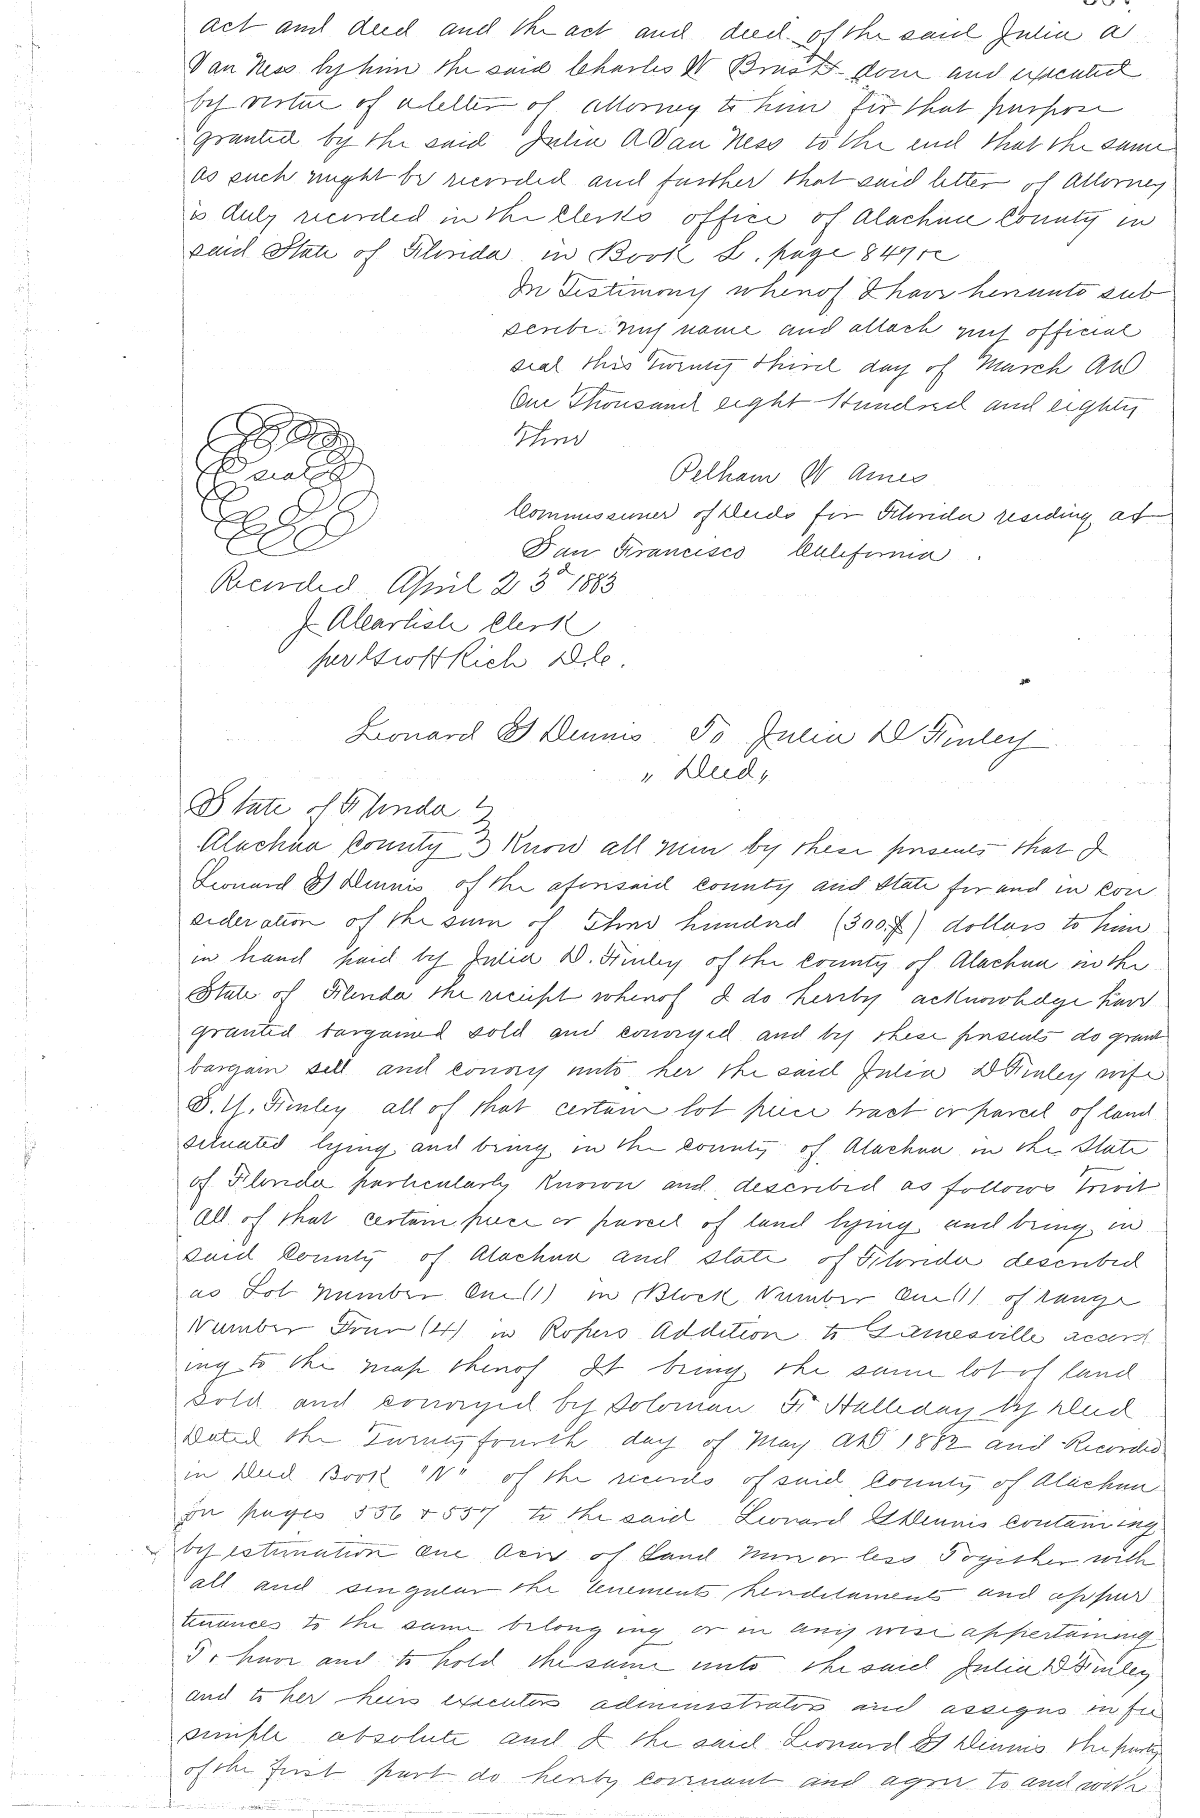 act and deed and the act and deed of the said Julia A
Van Ness by him the said Charles W done and executed
by virtue of a letter of attorney to him for that purpose
granted by the said Julia A Van Ness to the end that the same
as such might be recorded and further that said letter of Attorney
is duly recorded in the Clerks office of Alachua County in
said State of Florida in Book L. page 847
In Testimony whereof I have hereunto sub
scribe my name and attach my official
seal this Twenty third day of March AD
One Thousand eight Hundred and eighty
Three
seal
Pelham W Ames
Commissioner of Deeds for Florida residing at
San Francisco California.
Recorded April 23d 1883
J A Carlisle Clerk
per Rich D.C.
Leonard G Dennis To Julia D Finley
" Deed "
State of Florida }
Alachua County } Know all men by these presents that I
Leonard G Dennis of the aforesaid county and State for and in con
sideration of the sum of Three hundred (300.$) dollars to him
in hand paid by Julia D. Finley of the county of Alachua in the
State of Florida the receipt whereof I do hereby acknowledge have
granted bargained sold and conveyed and by these presents do grant
bargain sell and convey unto her the said Julia D Finley wife
S. Y. Finley all of that certain lot piece tract or parcel of land
situated lying and being in the county of Alachua in the State
of Florida particularly known and described as follows Towit
All of that certain piece or parcel of land lying and being in
said County of Alachua and state of Florida described
as Lot Number One (1) in Block Number One (1) of range
Number Four (4) in Ropers Addition to Gainesville accord
ing to the map thereof It being the same lot of land
sold and conveyed by Solomon F Halliday by Deed
Dated the Twenty fourth day of May AD 1882 and Recorded
in Deed Book "N" of the records of said County of Alachua
on pages 536 & 537 to the said Leonard G Dennis containing
by estimation one Acre of Land more or less Together with
all and singular the tenements hereditaments and appur
tenances to the same belonging or in any wise appertaining
To have and to hold the same unto the said Julia D Finley
and to her heirs executors administrators and assigns in fee
simple absolute and I the said Leonard G Dennis the party
of the first part do hereby covenant and agree to and with